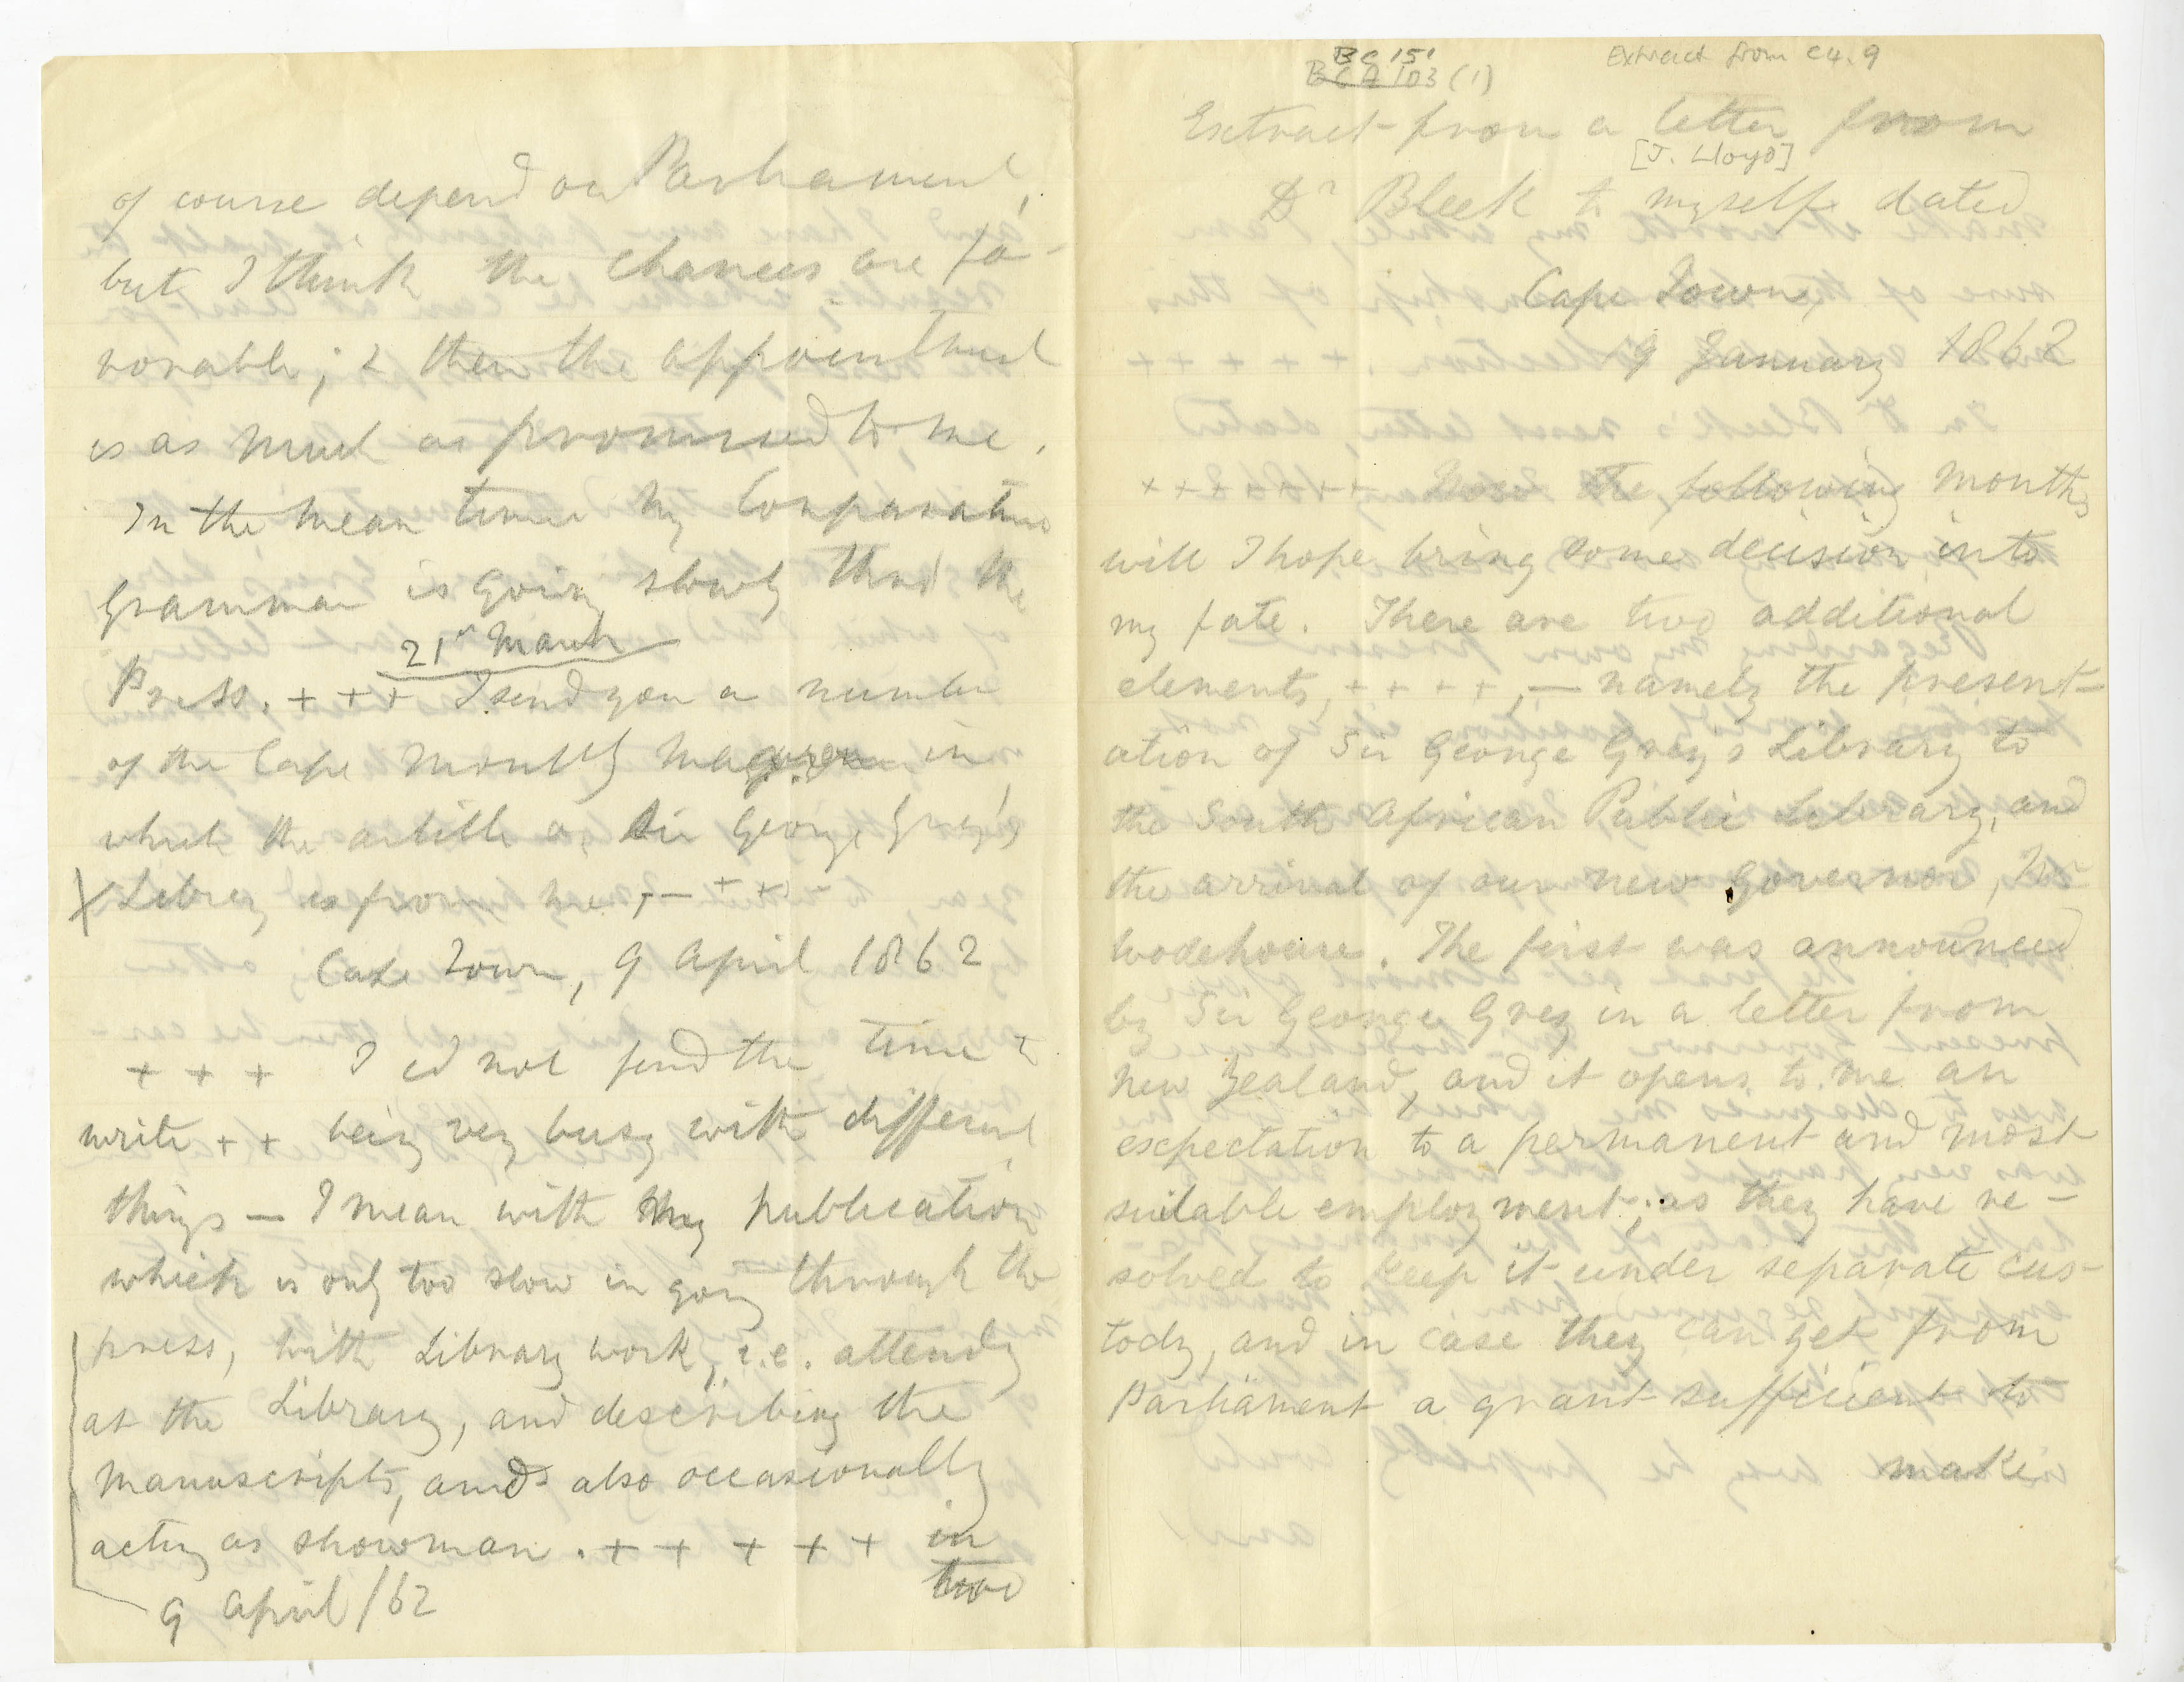 of course depend on Parliament,
but I think the chances are fa-
vorable; & then the appointment
is as much as promised to me.
In the mean time my Comparative
Grammar is going slowly thro' the
21st March
Press. + + + I send you a number
of the Cape Monthly Magazine in
which the article on Sir George Grey's
X Library is from me, — + +
Cape Town, 9 April 1862
+ + + I cd not find the time to
write + + being very busy with different
things — I mean with my publication
which is only too slow in going through the
press, with Library work, i.e. attendg
at the Library, and describing the
manuscripts, and also occasionally
acting as showman. + + + + + in
two
9 April/62
BC 151
BCA 103 (1)
Extract from C4.9
Extract from a letter from
[J. Lloyd]
Dr Bleek to myself dated
Cape Town,
9 January 1862
+ + + + + + + the following months
will I hope bring some decision into
my fate. There are two additional
elements, + + + +, — namely the present-
ation of Sir George Grey's Library to
the South African Public Library, and
the arrival of our new Governor, Mr
Wodehouse. The first was announced
by Sir George Grey in a letter from
New Zealand, and it opens to me an
expectation to a permanent and most
suitable employment; as they have re-
solved to keep it under separate cus-
tody, and in case they can get from
Parliament a grant sufficient to
make